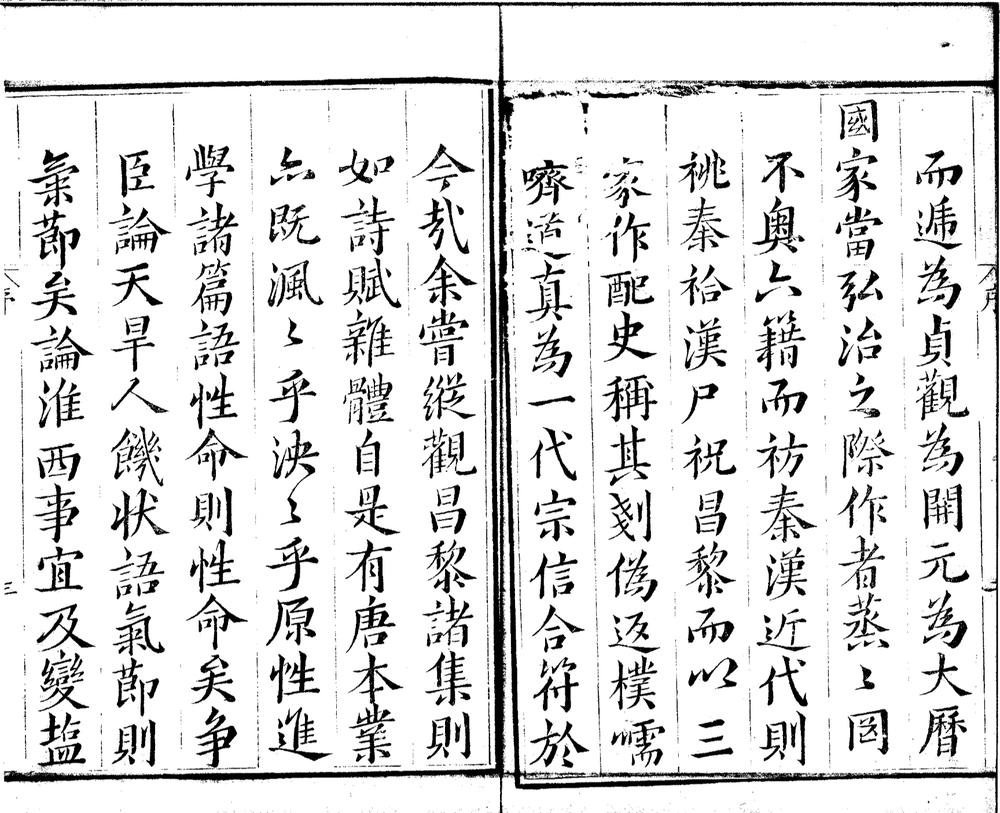 而遞為貞觀為開元為大曆
國家當弘治之際作者蒸〻罔
不奧六籍而祊秦漢近代則
祧秦祫漢尸祝昌黎而以三
家作配史稱其剗偽返樸嚅
嚌道真為一代宗信合符於
今哉余嘗縱觀昌黎諸集則
如詩賦雜體自是有唐本業
亦既渢〻乎泱〻乎原性進
學諸篇語性命則性命矣爭
臣論天旱人饑狀語氣節則
氣節矣論淮西事宜及變塩